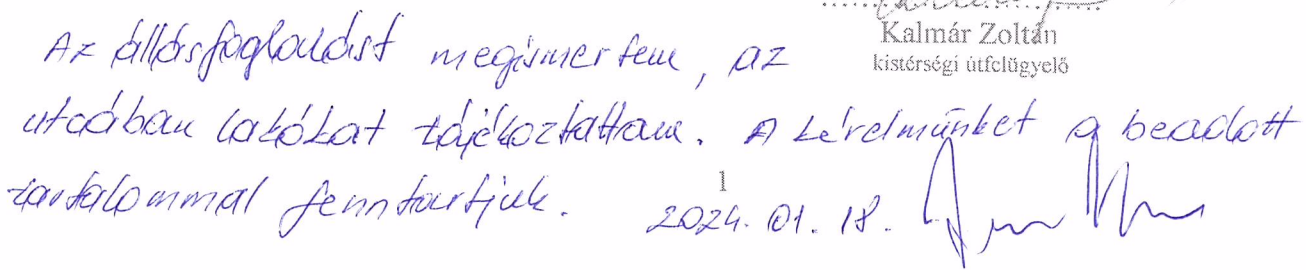 Kalmár Zoltán
kistérségi útfelügyelő
Az állásfoglalást megismertem, az
utcában lakókat tájékoztattam. A kérelmünket a beadott
tartalommal fenntartjuk.
1
2024. 01. 18.